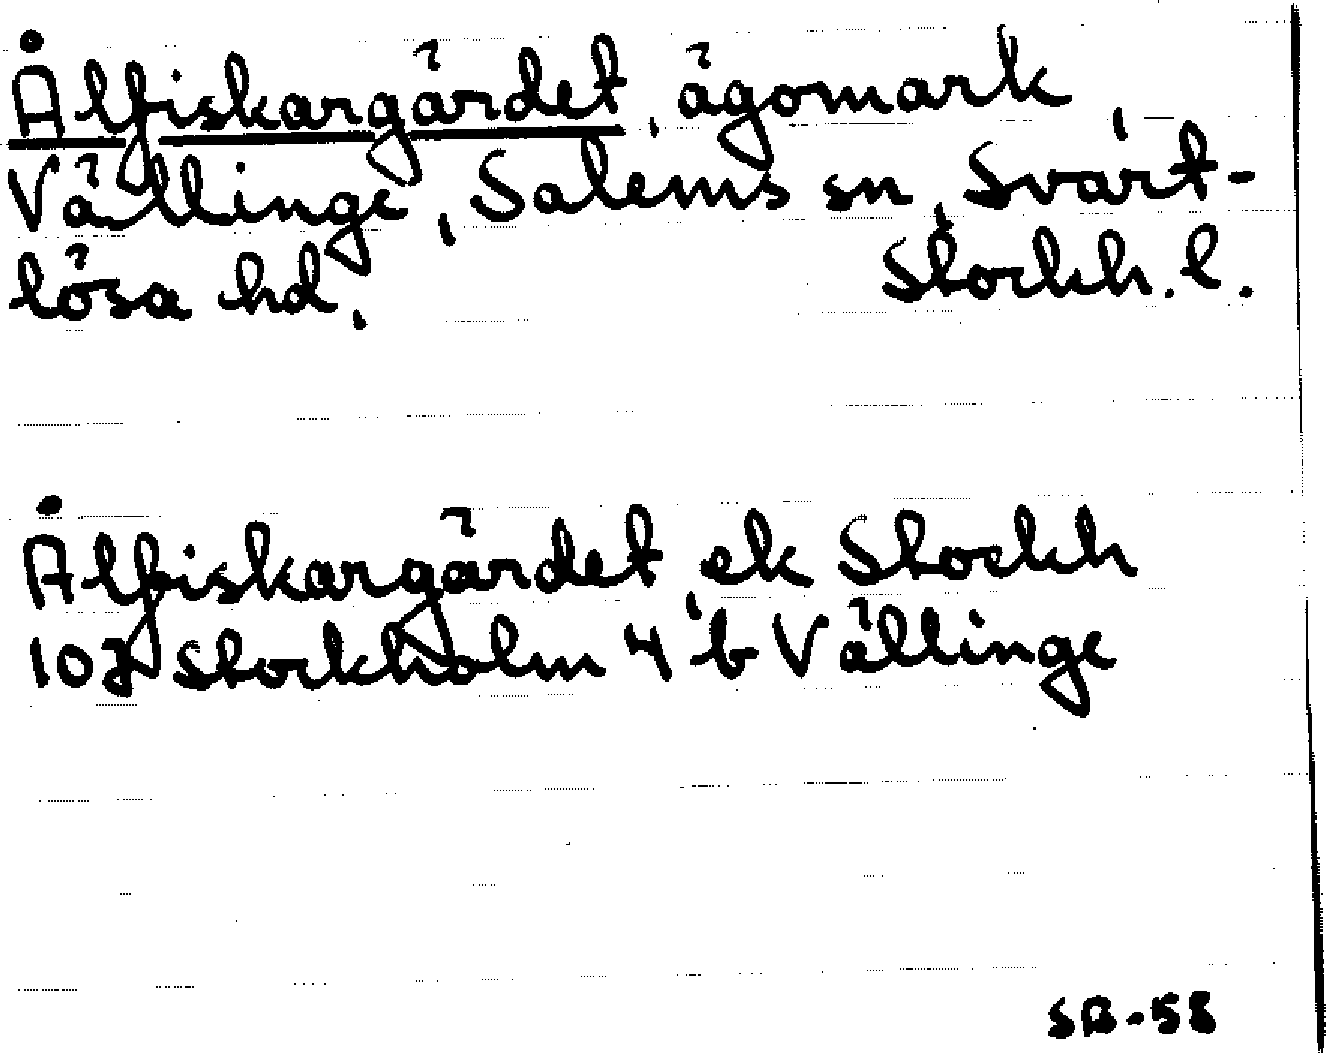 Ålfiskargärdet, ägomark,
Vällinge, Salems sn, Svart-
lösa hd, Stockh. l.
Ålfiskargärdet ek Stockh
103 Stockholm 4 b Vällinge
SB-58